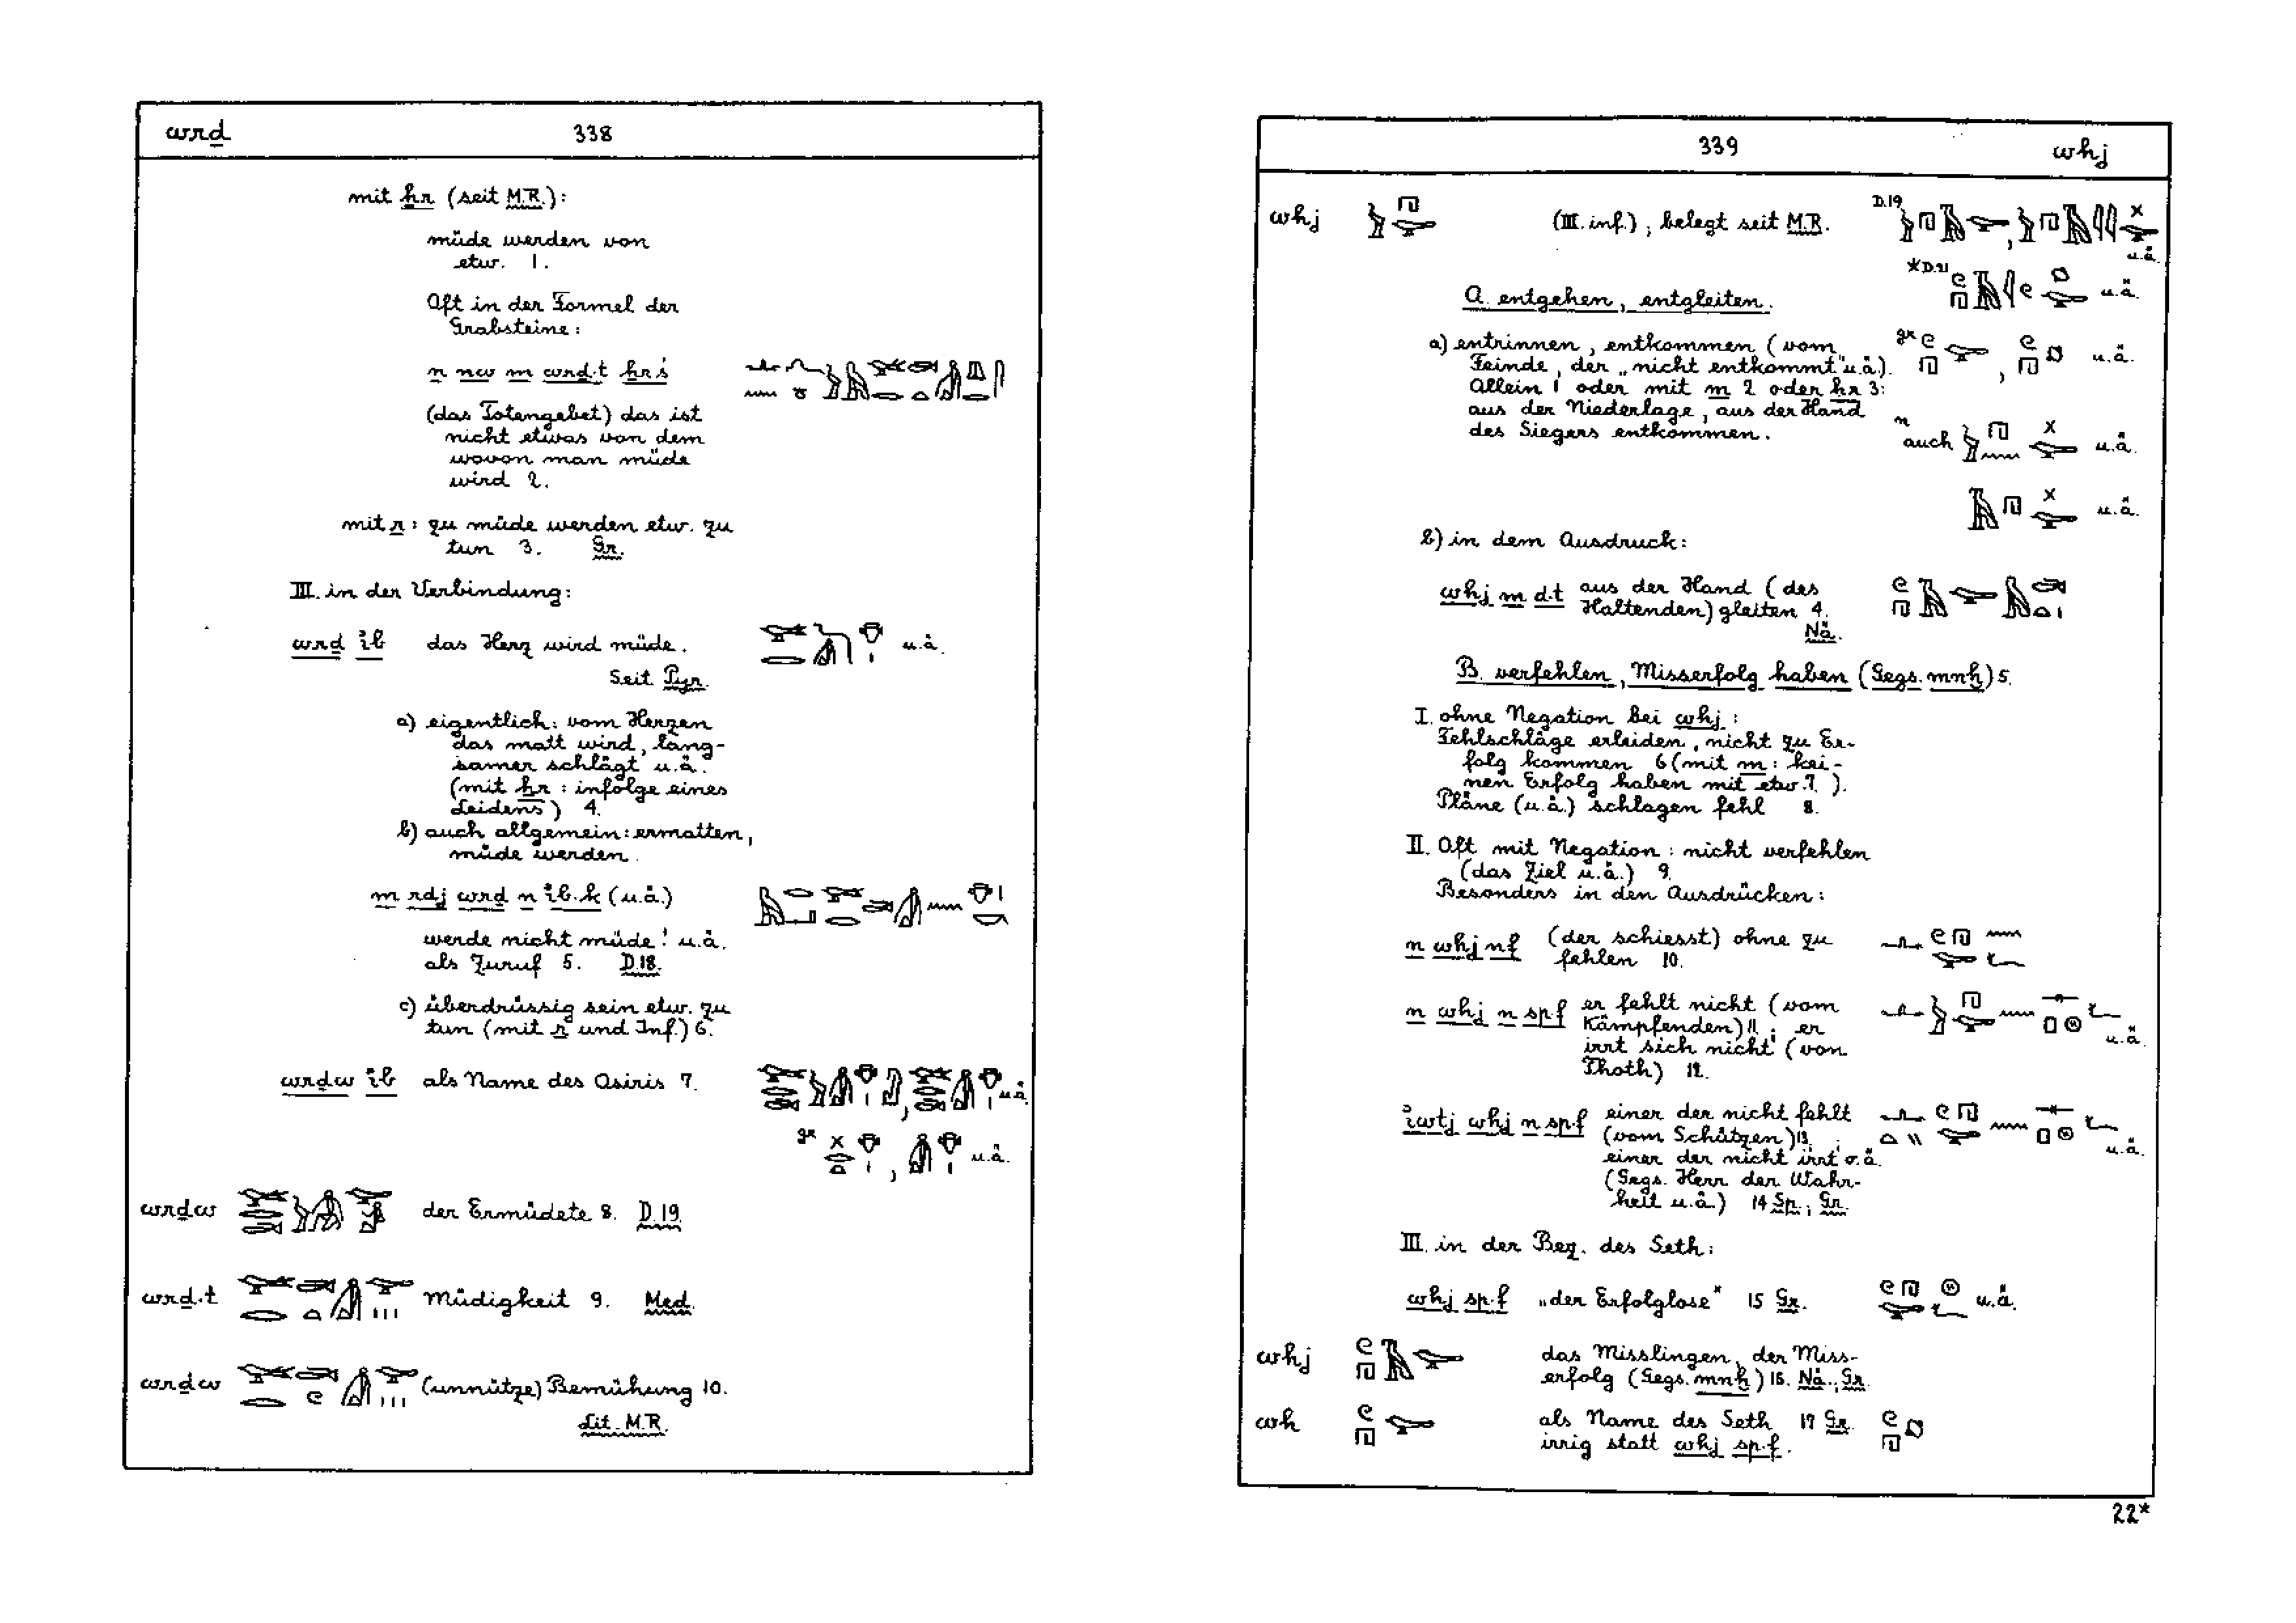 wrd̲ 338
mit ḥr (seit M.R.):
müde werden von
etw. 1.
Oft in der Formel der
Grabsteine:
n nw m wrd̲.t ḥr.ś
(das Totengebet) das ist
nicht etwas von dem
wovon man müde
wird 2.
mit r: zu müde werden etw. zu
tun 3. Gr.
III. in der Verbindung:
wrd̲ ib das Herz wird müde. u.ä.
Seit Pyr.
a) eigentlich: vom Herzen
das matt wird, lang-
samer schlägt u.ä.
(mit ḥr: infolge eines
Leidens) 4.
b) auch allgemein: ermatten,
müde werden.
m rdj wrd̲ n ib.k (u.ä.)
werde nicht müde! u.ä.
als Zuruf 5. D.18.
c) überdrüssig sein etw. zu
tun (mit r und Inf.) 6.
wrd̲w ib als Name des Osiris 7. , u.ä.
gr , u.ä.
wrd̲w der Ermüdete 8. D.19.
wrd̲.t Müdigkeit 9. Med.
wrd̲w (unnütze) Bemühung 10.
Lit. M.R.
339 whj
whj (III. inf.); belegt seit M.R. D.19 , u.ä.
*D.21 u.ä.
A. entgehen, entgleiten.
a) entrinnen, entkommen (vom gr , u.ä.
Feinde, der „nicht entkommt" u.ä.).
Allein 1 oder mit m 2 oder ḥr 3:
aus der Niederlage, aus der Hand
des Siegers entkommen. auch u.ä.
u.ä.
b) in dem Ausdruck:
whj m d.t aus der Hand (des
Haltenden) gleiten 4.
Nä.
B. verfehlen, Misserfolg haben (Gegs. mnḫ) 5.
I. ohne Negation bei whj:
Fehlschläge erleiden, nicht zu Er-
folg kommen 6 (mit m: kei-
nen Erfolg haben mit etw. 7.).
Pläne (u.ä.) schlagen fehl 8.
II. Oft mit Negation: nicht verfehlen
(das Ziel u.ä.) 9.
Besonders in den Ausdrücken:
n whj nf (der schiesst) ohne zu
fehlen 10.
n whj n sp.f er fehlt nicht (vom
Kämpfenden) 11; er u.ä.
irrt sich nicht (von
Thoth) 12.
iwtj whj n sp.f einer der nicht fehlt
(vom Schützen) 13; u.ä.
einer der nicht irrt o.ä.
(Gegs. Herr der Wahr-
heit u.ä.) 14 Sp.; Gr.
III. in der Bez. des Seth:
whj sp.f „der Erfolglose" 15 Gr. u.ä.
whj das Misslingen, der Miss-
erfolg (Gegs. mnḫ) 16. Nä.; Gr.
wh als Name des Seth 17 Gr.
irrig statt whj sp.f.
22*